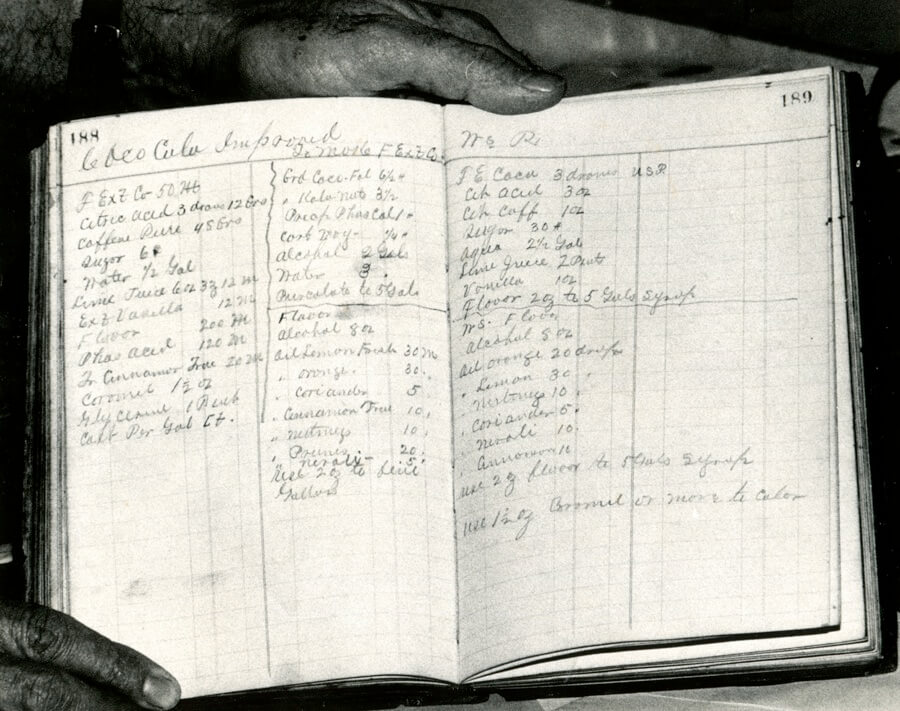 188
Coco Cola Improved
F Ext Co 50 M
Citric Acid 3 drams 12 Grs
Caffene Pure 48 Grs
Sugar 6 #
Water 1/2 Gal
Lime Juice 6 oz 3z 12 M
Ext Vanilla 12 M
Flavor 200 M
Phos Acid 120 M
Tr Cinnamon True 20 M
Coromel 1 1/2 oz
Glycerine 1 Pint
Cost Per Gal
To Make F Ext Co
Grd Coco-Fol 6 1/2 "
" Kola Nuts 3 1/2
Precip Phos Cal 1 "
Carb 1/4 "
Alcohol 2 Gals
Water 3 "
Percolate to 5 Gals
Flavor
Alcohol 8 oz
Oil Lemon Fresh 30 M
" orange 30 "
" coriander 5 "
" Cinnamon True 10 "
" Nutmegs 10 "
" 20 "
" nerali - 5 "
Use 2 oz to
Gallons
189
F E Coca 3 drams U S P
Cit Acid 3 oz
Cit Caff 1 oz
Sugar 30 #
Aqua 2 1/2 Gal
Lime Juice 2 Pints
Vanilla 1 oz
Flavor 2 oz to 5 Gals Syrup
Flavor
Alcohol 8 oz
Oil orange 20 drops
" Lemon 30 "
" Nutmegs 10 "
" Coriander 5 "
" Nerali 10 "
" Cinnamon 10
Use 2 oz flavor to 5 Gals Syrup
Use 1 1/2 oz or more to color